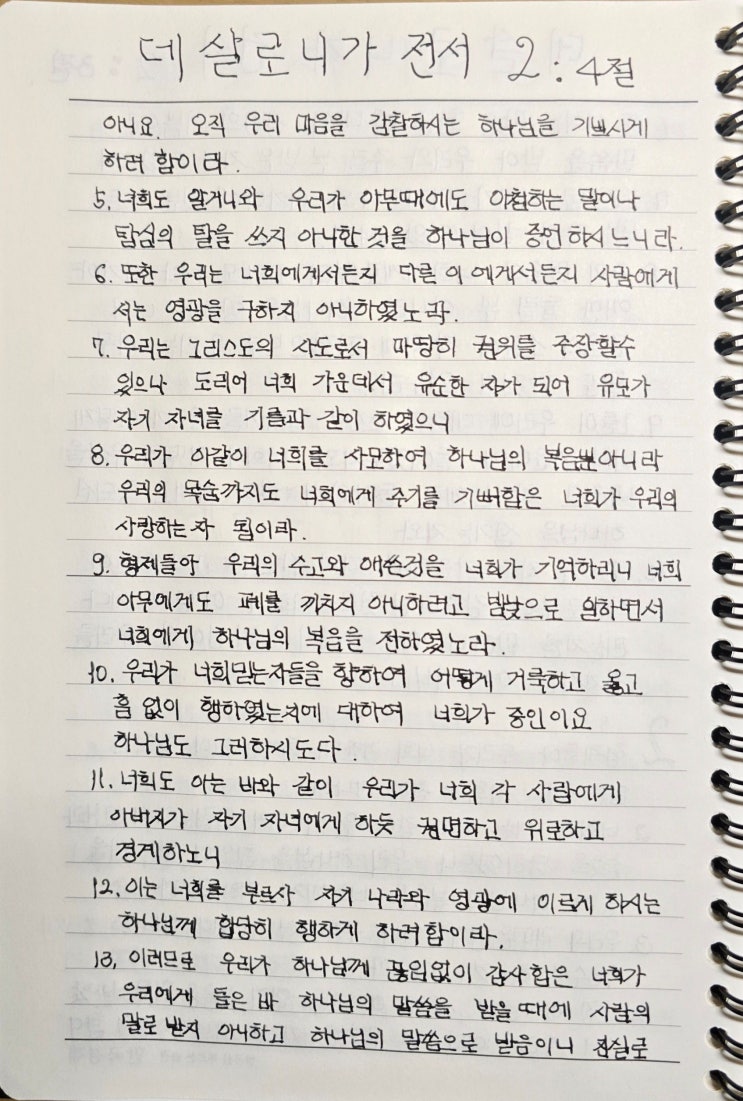 데살로니가 전서 2:4절
아니요. 오직 우리 마음을 감찰하시는 하나님을 기쁘시게
하려 함이라.
5. 너희도 알거니와 우리가 아무때에도 아첨하는 말이나
탐심의 탈을 쓰지 아니한 것을 하나님이 증언하시느니라.
6. 또한 우리는 너희에게서든지 다른 이에게서든지 사람에게
서는 영광을 구하지 아니하였노라.
7. 우리는 그리스도의 사도로서 마땅히 권위를 주장할수
있으나 도리어 너희 가운데서 유순한 자가 되어 유모가
자기 자녀를 기름과 같이 하였으니
8. 우리가 이같이 너희를 사모하여 하나님의 복음뿐아니라
우리의 목숨까지도 너희에게 주기를 기뻐함은 너희가 우리의
사랑하는자 됨이라.
9. 형제들아 우리의 수고와 애쓴것을 너희가 기억하리니 너희
아무에게도 폐를 끼치지 아니하려고 밤낮으로 일하면서
너희에게 하나님의 복음을 전하였노라.
10. 우리가 너희믿는자들을 향하여 어떻게 거룩하고 옳고
흠 없이 행하였는지에 대하여 너희가 증인이요
하나님도 그러하시도다.
11. 너희도 아는 바와 같이 우리가 너희 각 사람에게
아버지가 자기 자녀에게 하듯 권면하고 위로하고
경계하노니
12. 이는 너희를 부르사 자기 나라와 영광에 이르게 하시는
하나님께 합당히 행하게 하려함이라.
13. 이러므로 우리가 하나님께 끊임없이 감사함은 너희가
우리에게 들은 바 하나님의 말씀을 받을 때에 사람의
말로 받지 아니하고 하나님의 말씀으로 받음이니 진실로